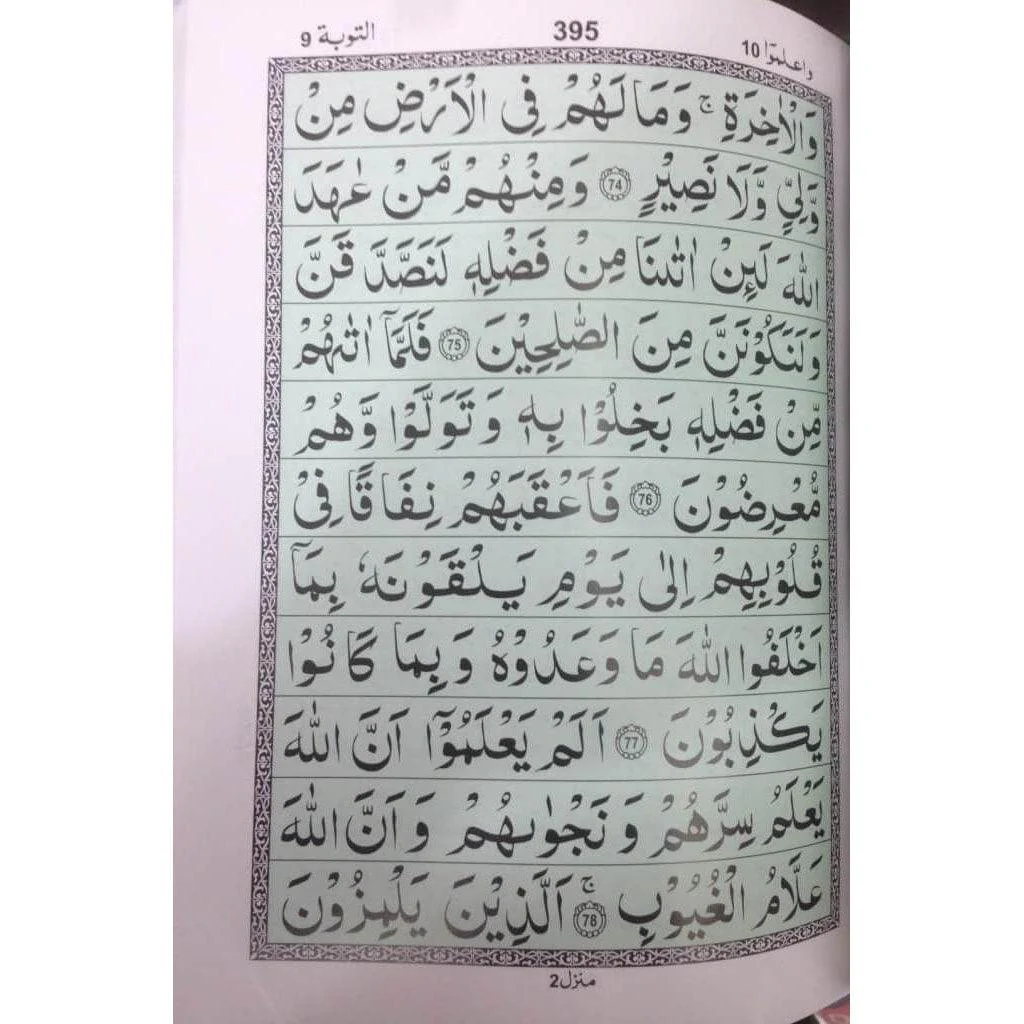 واعلموا 10 395 التوبة 9
وَالْاٰخِرَةِ ۚ وَمَا لَهُمْ فِی الْاَرْضِ مِنْ
وَّلِیٍّ وَّلَا نَصِیْرٍ 74 وَمِنْهُمْ مَّنْ عٰهَدَ
اللّٰهَ لَىِٕنْ اٰتٰىنَا مِنْ فَضْلِهٖ لَنَصَّدَّقَنَّ
وَلَنَكُوْنَنَّ مِنَ الصّٰلِحِیْنَ 75 فَلَمَّاۤ اٰتٰىهُمْ
مِّنْ فَضْلِهٖ بَخِلُوْا بِهٖ وَتَوَلَّوْا وَّهُمْ
مُّعْرِضُوْنَ 76 فَاَعْقَبَهُمْ نِفَاقًا فِیْ
قُلُوْبِهِمْ اِلٰی یَوْمِ یَلْقَوْنَهٗ بِمَاۤ
اَخْلَفُوا اللّٰهَ مَا وَعَدُوْهُ وَبِمَا كَانُوْا
یَكْذِبُوْنَ 77 اَلَمْ یَعْلَمُوْۤا اَنَّ اللّٰهَ
یَعْلَمُ سِرَّهُمْ وَنَجْوٰىهُمْ وَاَنَّ اللّٰهَ
عَلَّامُ الْغُیُوْبِ ۚ 78 اَلَّذِیْنَ یَلْمِزُوْنَ
منزل 2